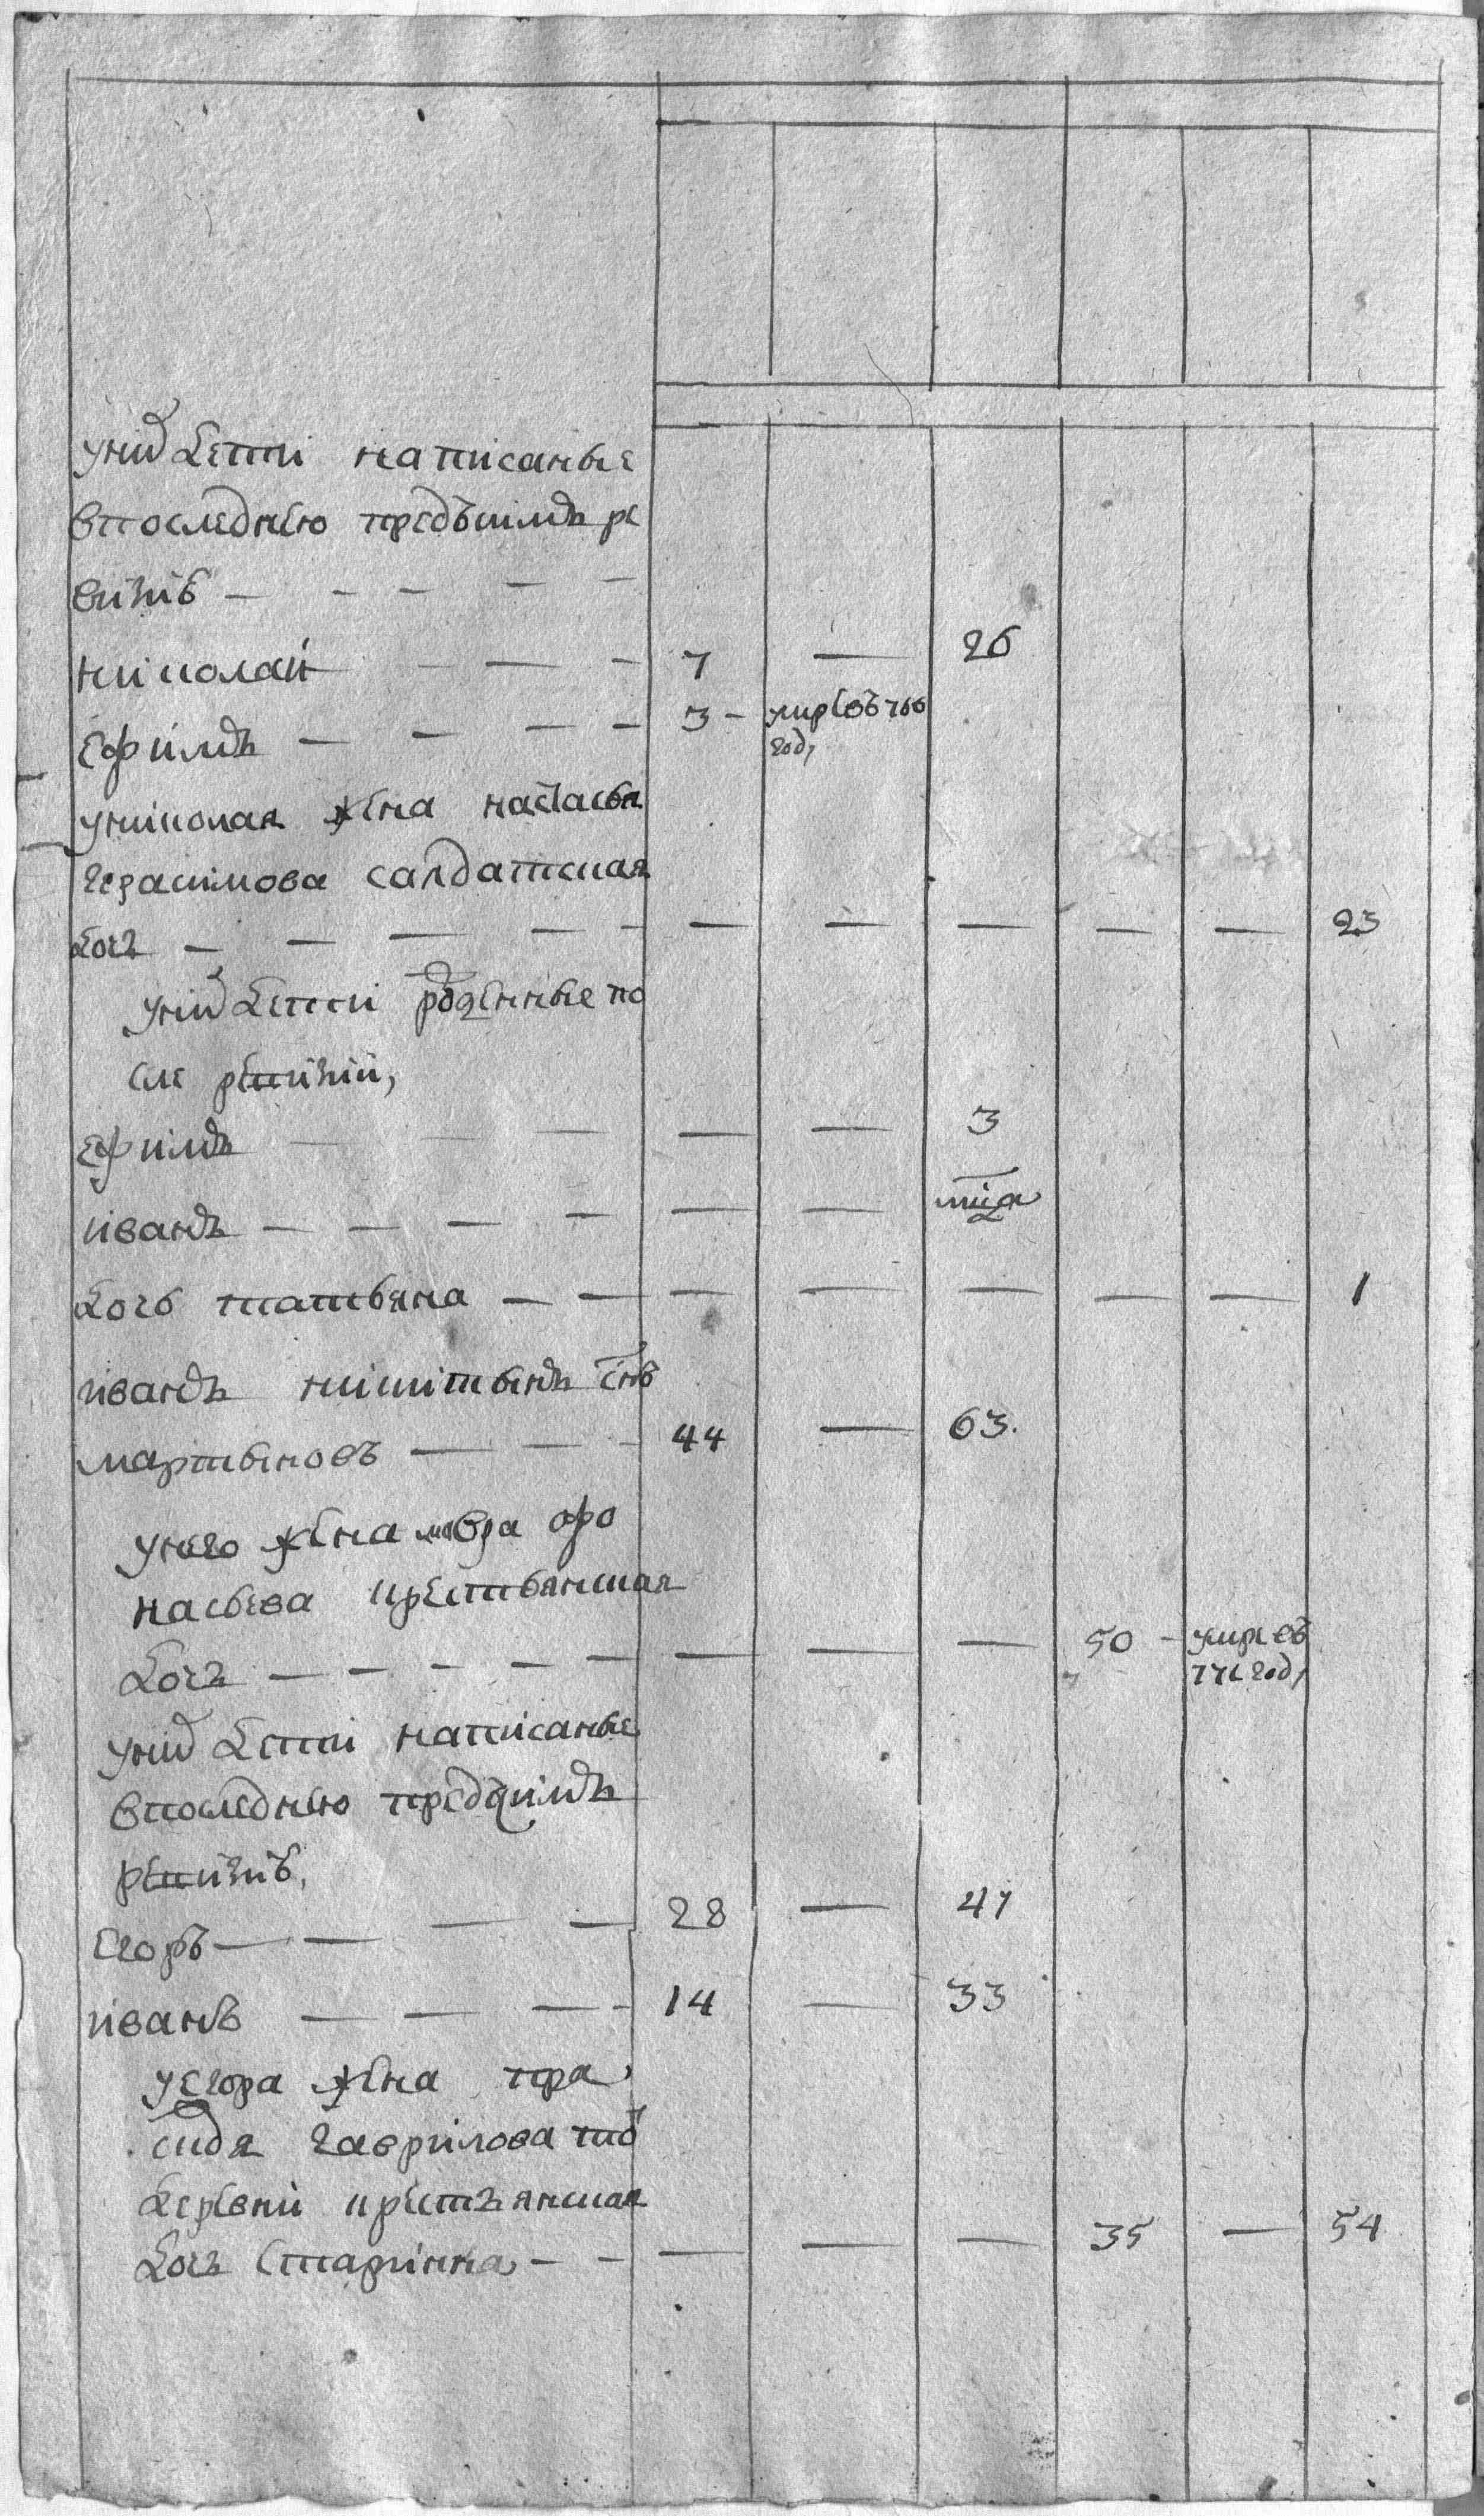 уних дети написаные
впоследнею пред симъ ре
визиѣ — — — — —
николай — — — 7 — 26
ефимъ — — — — 3 — умре въ 766
году
униколая жена настасья
герасимова салдатская
дочь — — — — — — — — — — 23
уних дети рожденные по
сле ревизии,
ефимъ — — — — — 3
иванъ — — — — — — мца
дочь татьяна — — — — — — — 1
иванъ никитинъ снъ
мартыновъ — — — 44 — 63.
унего жена мавра афо
насьева крестьянская
дочь — — — — — — — — 50 — умре въ
году
уних дети написаные
впоследнею пред симъ
ревизиѣ,
егоръ — — — — 28 — 47
иванъ — — — — 14 — 33
уегора жена пра
сковья гаврилова той
деревни крестьянская
дочь старинна — — — — — 35 — 54